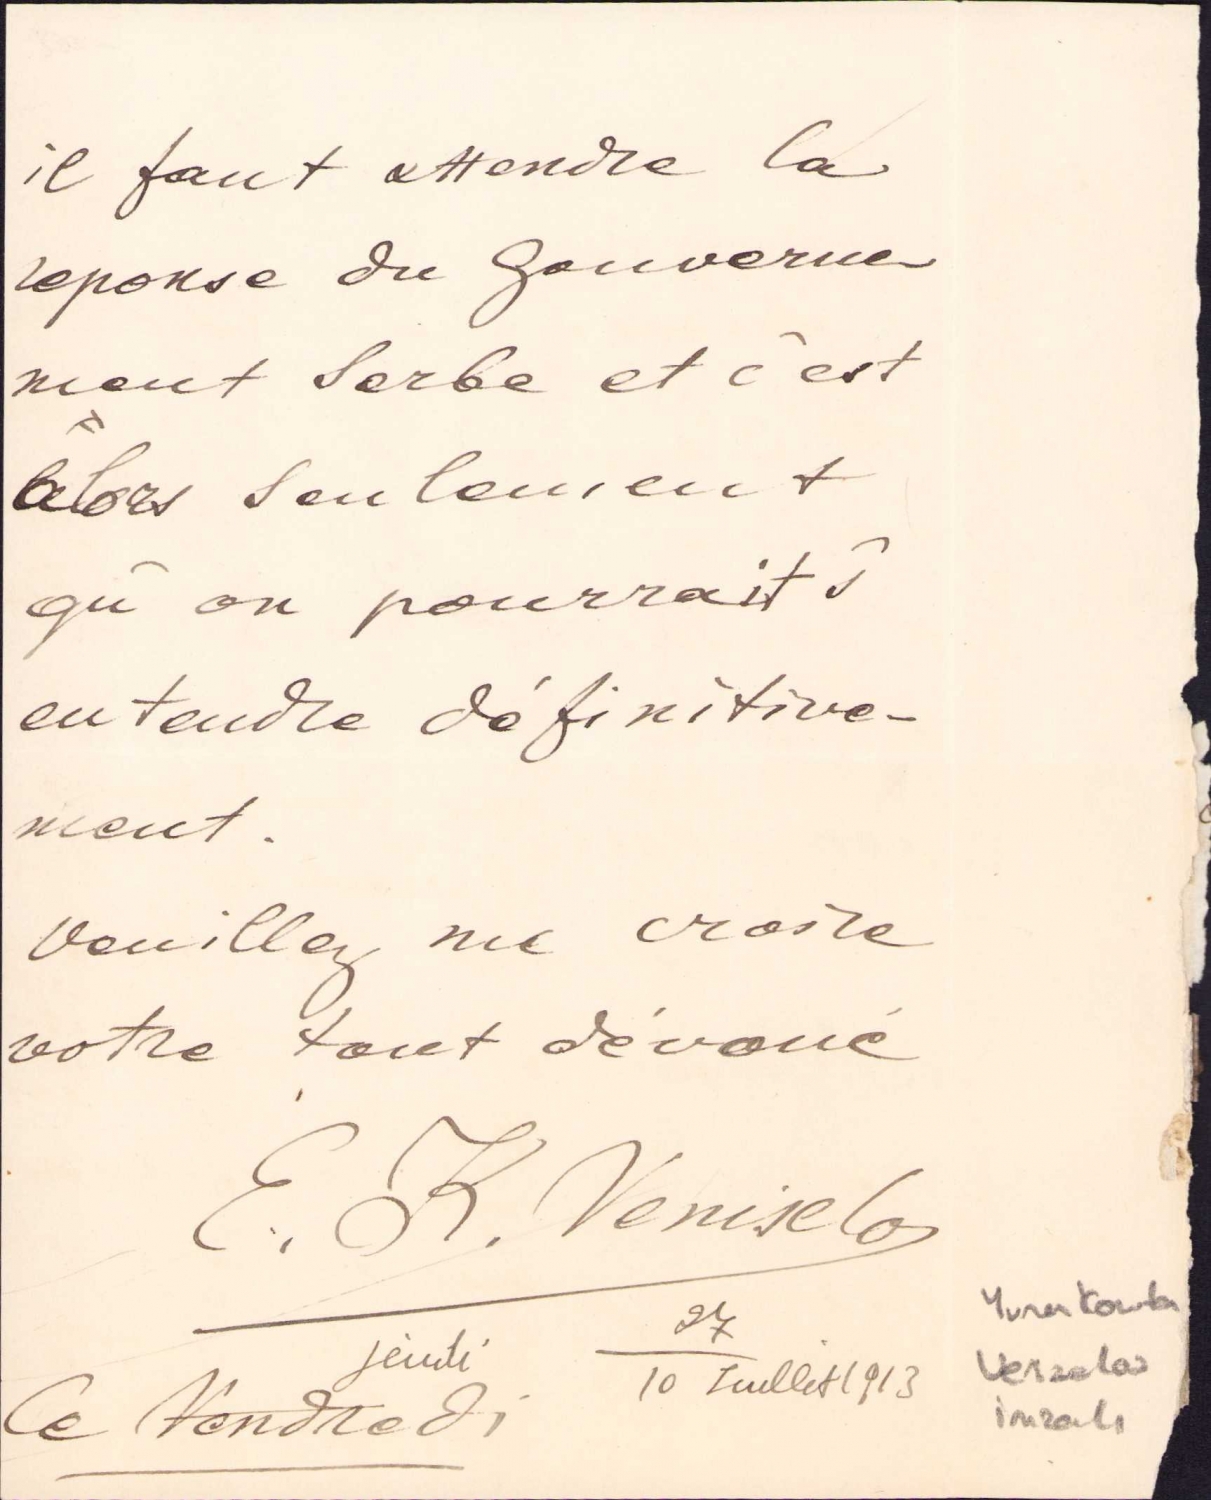 il faut attendre la
reponse du Gouverne
ment Serbe et c'est
alors seulement
qu'on pourrait s'
entendre définitive-
ment.
Veuillez me croire
votre tout dévoué
E. K. Veniselos
27
jeudi
10 Juillet 1913
Ce Vendredi
Yunan
imzalı